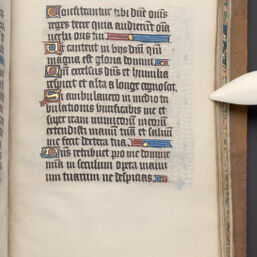 Confiteantur tibi dñe oms
reges terre quia audierunt oīa
uerba oris tui
Et cantent in uijs dñi qm̄
magna est gloria domini
Qm̄ excelsus dñs et humilia
respicit et alta a longe cognoscit
Si ambulauero in medio tri
bulationis uiuificabis me et
super iram inimicorū meorū
extendisti manū tuā et saluū
me fecit dextera tua
Dñs retribuet pro me domine
mīa in seculum opera manu
um tuarum ne despicias